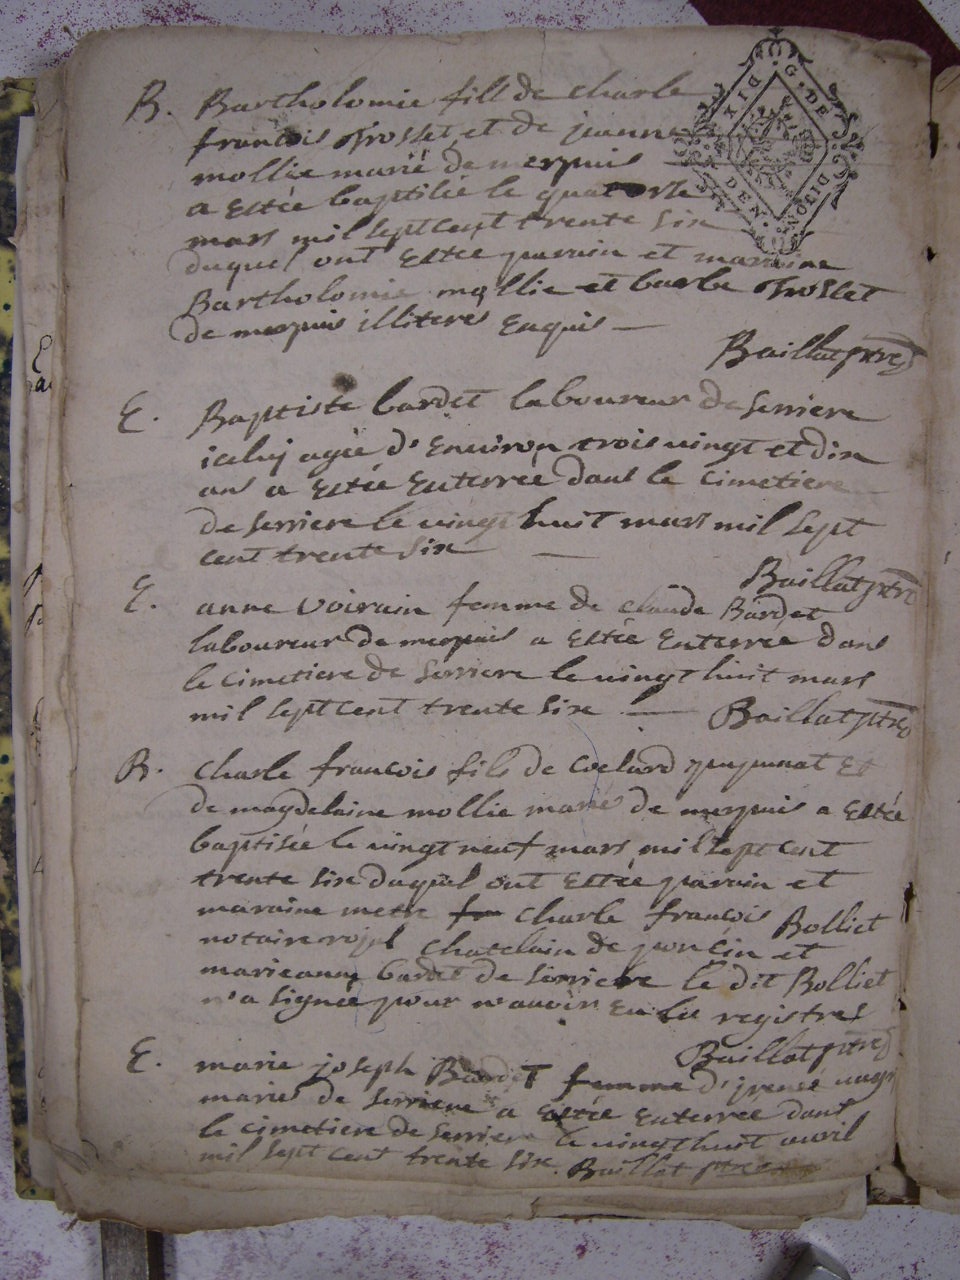 B. Bartholomie fill de charle
francois Trosset et de jeanne
mollie marié de merpuis
a Estée baptisée le quatorse
mars mil sept cent trente six
duquel ont Estée parain et maraine
Bartholomie mollie et barbe Trosset
de merpuis illiteres Enquis
Baillat ptre
E. Baptiste bardet laboureur de serriere
iceluy agée d'Environ trois vingt et dix
ans a Estée Enterrée dans le cimetiere
de serriere le vingt huit mars mil sept
cent trente six
Baillat ptre
E. anne Voirain femme de claude Bardet
laboureur de merpuis a Estée Enterree dans
le cimetiere de serriere le vingt huit mars
mil sept cent trente six Baillat ptre
B. charle francois fils de Et
de magdelaine mollie mariés de merpuis a Estée
baptisée le vingt neuf mars mil sept cent
trente six duquel ont Estée parain et
maraine metre charle françois Bolliet
notaire royal chatelain de poncin et
marieanne bardet de serriere le dit Bolliet
n'a signée pour n'avoir Eu les registres
Baillat ptre
E. marie joseph Bardet femme d'
mariés de serriere a Estée Enterree dans
le cimetiere de serriere le vingt huit avril
mil sept cent trente six. Baillat ptre
G. DE
DIJON
DEN.